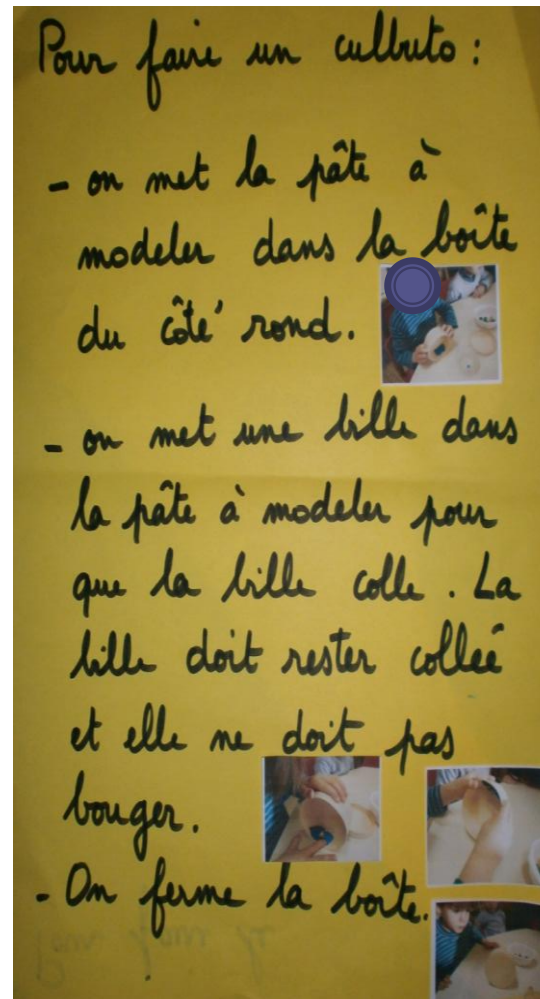 Pour faire un culbuto :
- on met la pâte à
modeler dans la boîte
du côté rond.
- on met une bille dans
la pâte à modeler pour
que la bille colle. La
bille doit rester collée
et elle ne doit pas
bouger.
- On ferme la boîte.